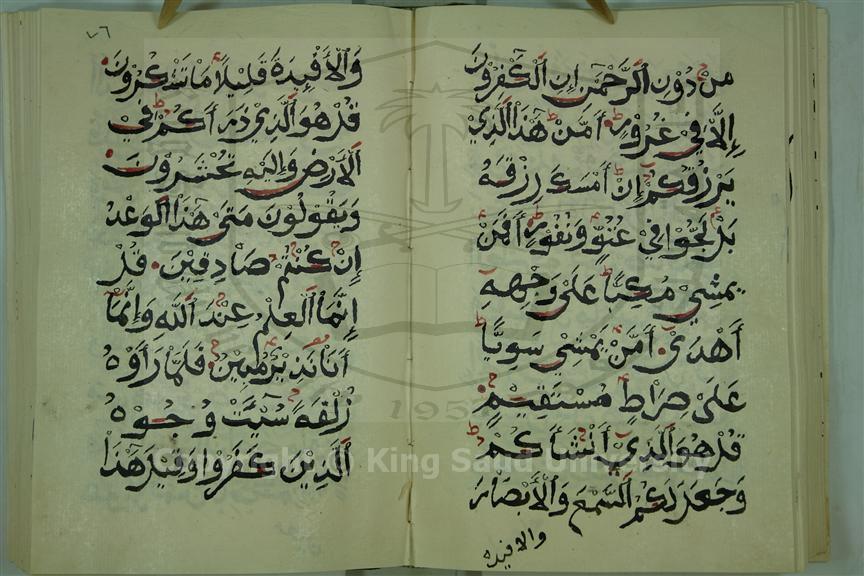 مِنْ دُوْنِ الرَّحْمٰنِ إِنِ الْكٰفِرُوْنَ
إِلَّا فِيْ غُرُوْرٍ أَمَّنْ هٰذَا الَّذِيْ
يَرْزُقُكُمْ إِنْ أَمْسَكَ رِزْقَهُ
بَلْ لَجُّوْا فِيْ عُتُوٍّ وَنُفُوْرٍ أَفَمَنْ
يَمْشِيْ مُكِبًّا عَلَىٰ وَجْهِهِ
أَهْدَىٰ أَمَّنْ يَمْشِيْ سَوِيًّا
عَلَىٰ صِرَاطٍ مُسْتَقِيْمٍ
قُلْ هُوَ الَّذِيْ أَنْشَأَكُمْ
وَجَعَلَ لَكُمُ السَّمْعَ وَالْأَبْصَارَ
والافيده
٧٦
وَالْأَفْئِدَةَ قَلِيْلًا مَا تَشْكُرُوْنَ
قُلْ هُوَ الَّذِيْ ذَرَأَكُمْ فِيْ
الْأَرْضِ وَإِلَيْهِ تُحْشَرُوْنَ
وَيَقُوْلُوْنَ مَتَىٰ هٰذَا الْوَعْدُ
إِنْ كُنْتُمْ صَادِقِيْنَ قُلْ
إِنَّمَا الْعِلْمُ عِنْدَ اللَّهِ وَإِنَّمَا
أَنَا نَذِيْرٌ مُبِيْنٌ فَلَمَّا رَأَوْهُ
زُلْفَةً سِيْئَتْ وُجُوْهُ
الَّذِيْنَ كَفَرُوْا وَقِيْلَ هٰذَا
Copyright © King Saud University
195